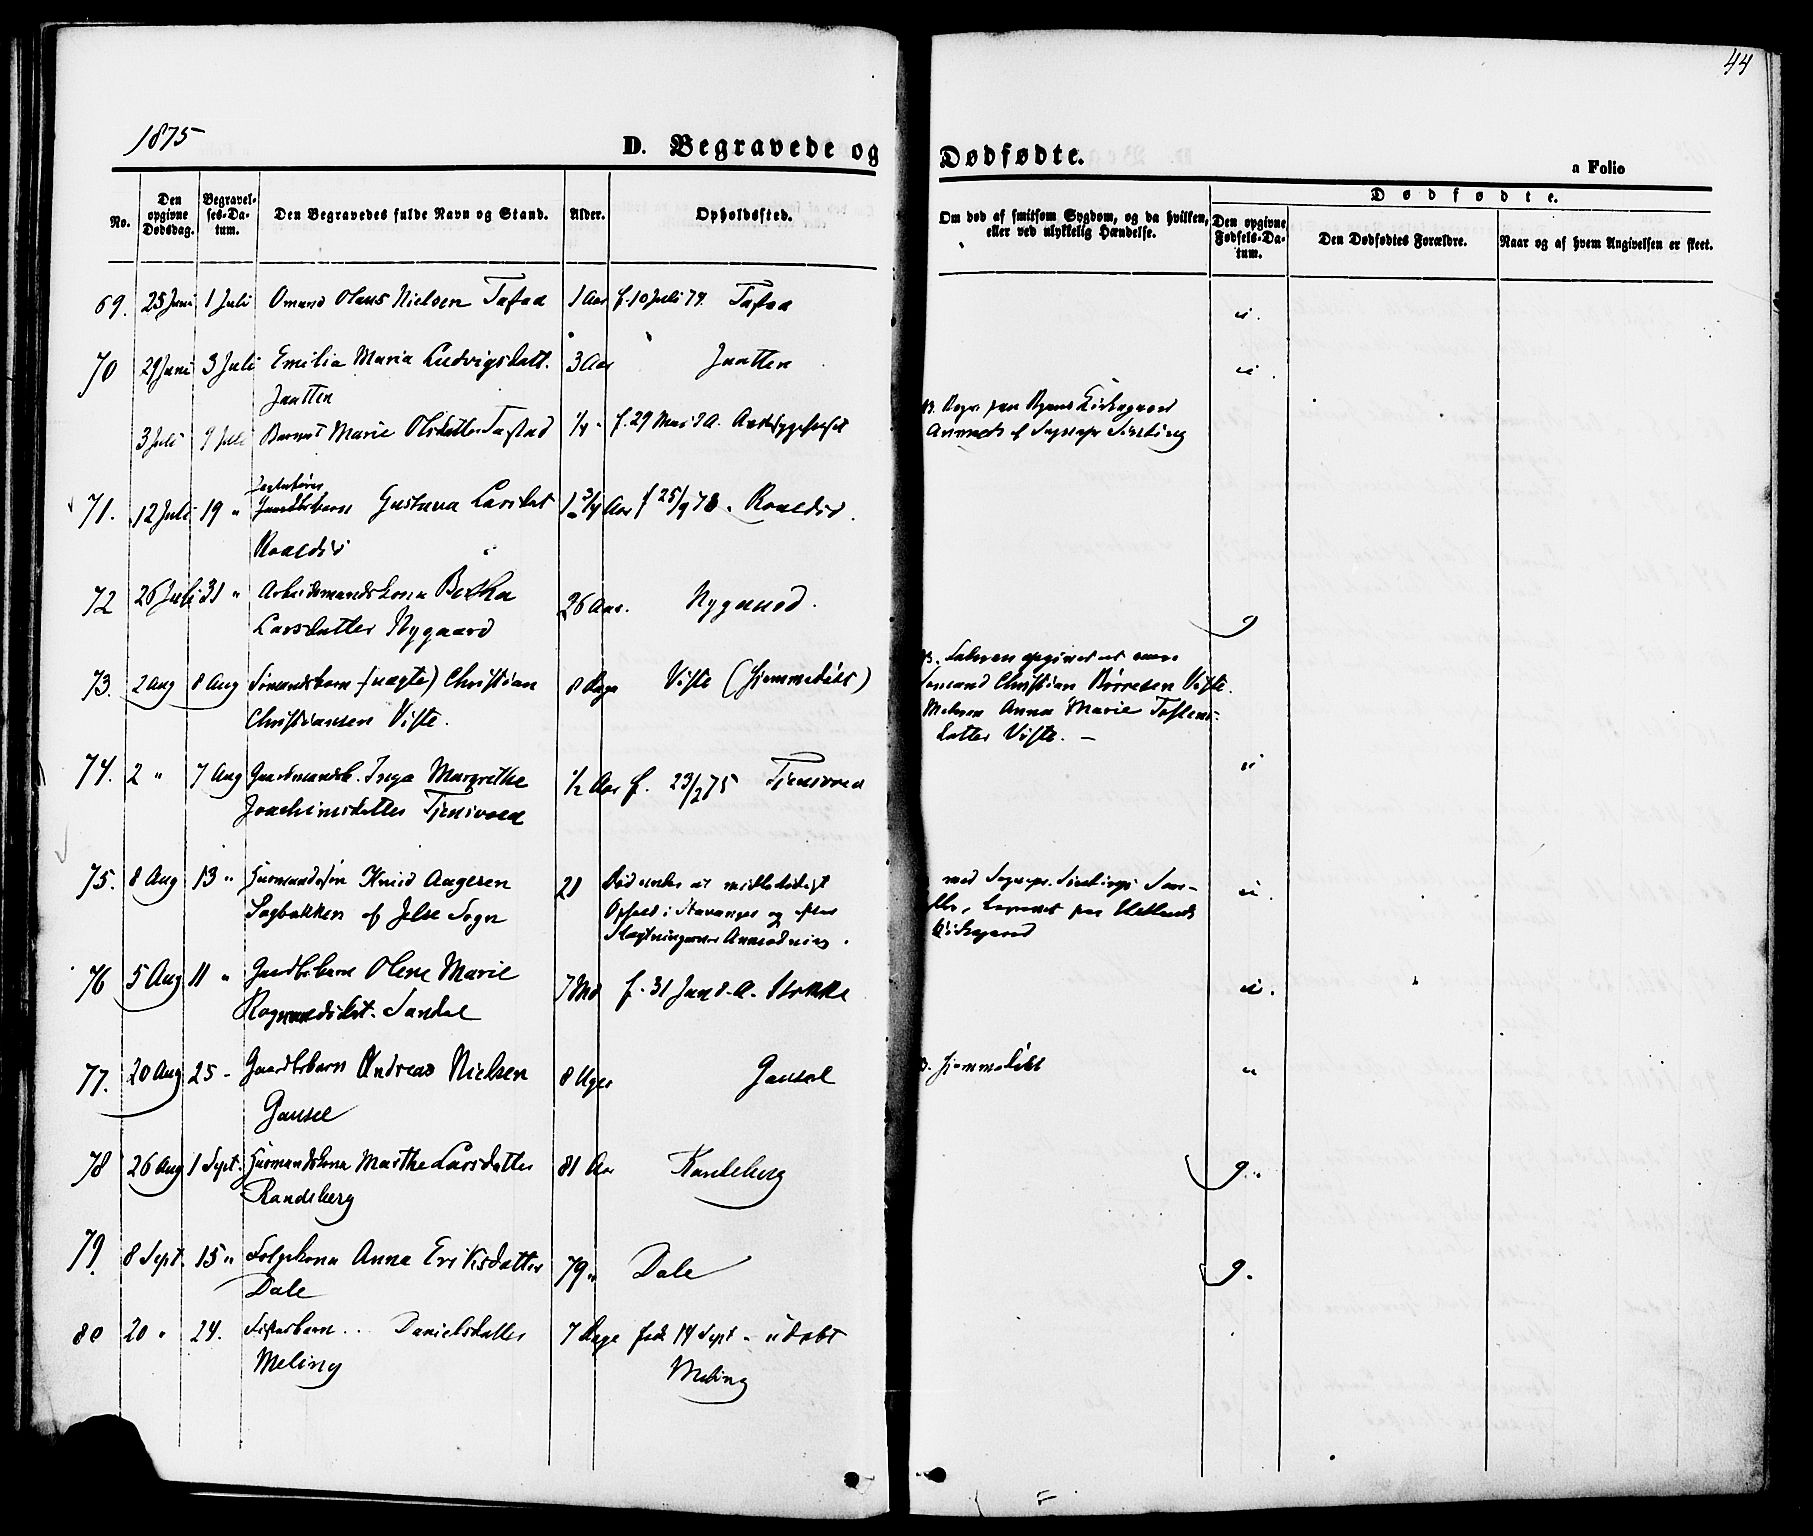 44
1875
D. Begravede og Dødfødte.
a Folio
No.
Den opgivne Dødsdag.
Begravelses-Datum.
Den Begravedes fulde Navn og Stand.
Alder.
Opholdssted.
Om død af smitsom Sygdom, og da hvilken, eller ved ulykkelig Hændelse.
Dødfødte.
Den opgivne Fødsels-Datum.
Den Dødfødtes Forældre.
Naar og af hvem Angivelsen er skeet.
69. 25 Juni 1 Juli Omund Olaus Nielsen Tastad 1 Aar f. 10 Juli 74. Tastad
70 29 Juni 3 Juli Emilia Maria Ludvigsdatt. 3 Aar Jaatten
Jaatten
3 Juli 9 Juli Barnet Marie Olsdatter Tastad 1/4 f. 29 Mai d. A.
71. 12 Juli 19 " Gustava Larsdat 1 3/4 Aar f 25/9 73. Roaldsø
Roaldsø
72 26 Juli 31 " Arbeidsmandskona Bertha 26 Aar. Nygaard.
Larsdatter Nygaard
73. 2 Aug 8 Aug Sømandsbarn (uægte) Christian 8 Dage Viste (hjemmedøbt)
Christiansen Viste.
Faderen opgivet at være
Sømand Christian Børresen Viste.
Moderen Anna Marie Tostens-
datter Viste. —
74. 2 " 7 Aug Gaardmandsb. Inga Margrethe 1/2 Aar f. 23/2 75 Tjensvold
Joachimsdatter Tjensvold
75. 8 Aug 13 " Huusmandssøn Knud Aagesen 28 Død under et midlertidigt
Sagbakken af Jelse Sogn Ophold i Stavanger og efter
Slægtningernes Anmodning
med Sognepr. Hetlands
Kirkegaard
76 5 Aug 11 " Gaardbrbarn Olene Marie 7 Md f. 31 Jan d. A. Stokke
Sandal
77. 20 Aug 25 - Gaardbrbarn Andreas Nielsen 8 Uger Gausel
Gausel
Hjemmedøbt
78 26 Aug 1 Sept. Huusmandskona Marthe Larsdatter 81 Aar Randeberg g.
Randeberg
79. 8 Sept. 15 " Folgekona Anna Eriksdatter 79 " Dale g.
Dale
80 20 " 24. Fisterbarn ... Danielsdatter 7 Dage født 14 Sept. - udøbt
Meling Meling